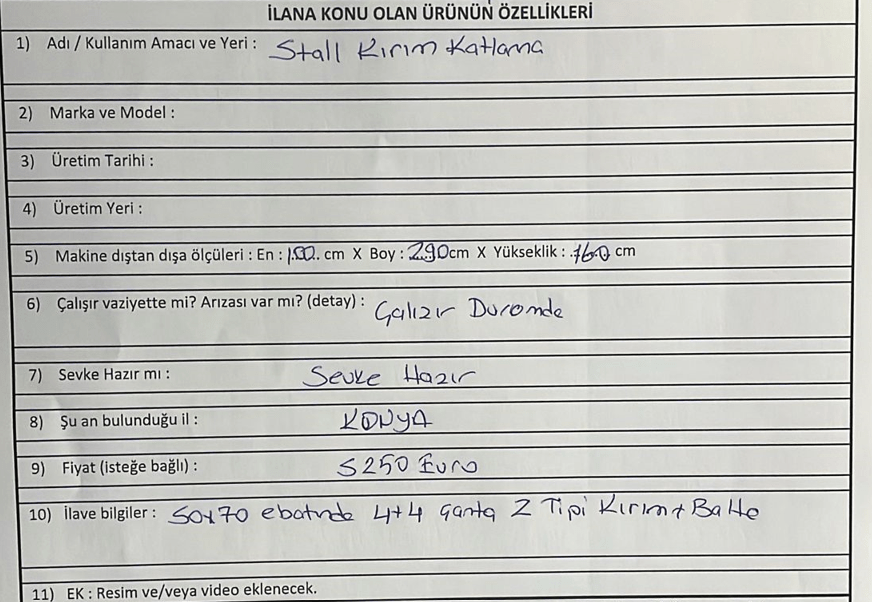 İLANA KONU OLAN ÜRÜNÜN ÖZELLİKLERİ
1) Adı / Kullanım Amacı ve Yeri : Stall Kırım Katlama
2) Marka ve Model :
3) Üretim Tarihi :
4) Üretim Yeri :
5) Makine dıştan dışa ölçüleri : En : 100. cm X Boy : 290cm X Yükseklik : .160 cm
6) Çalışır vaziyette mi? Arızası var mı? (detay) : Çalızır Duromda
7) Sevke Hazır mı : Sevke Hazır
8) Şu an bulunduğu il : KONYA
9) Fiyat (isteğe bağlı) : 5250 Euro
10) İlave bilgiler : 50x70 ebatında 4+4 çanta Z Tipi Kırım+
11) EK : Resim ve/veya video eklenecek.